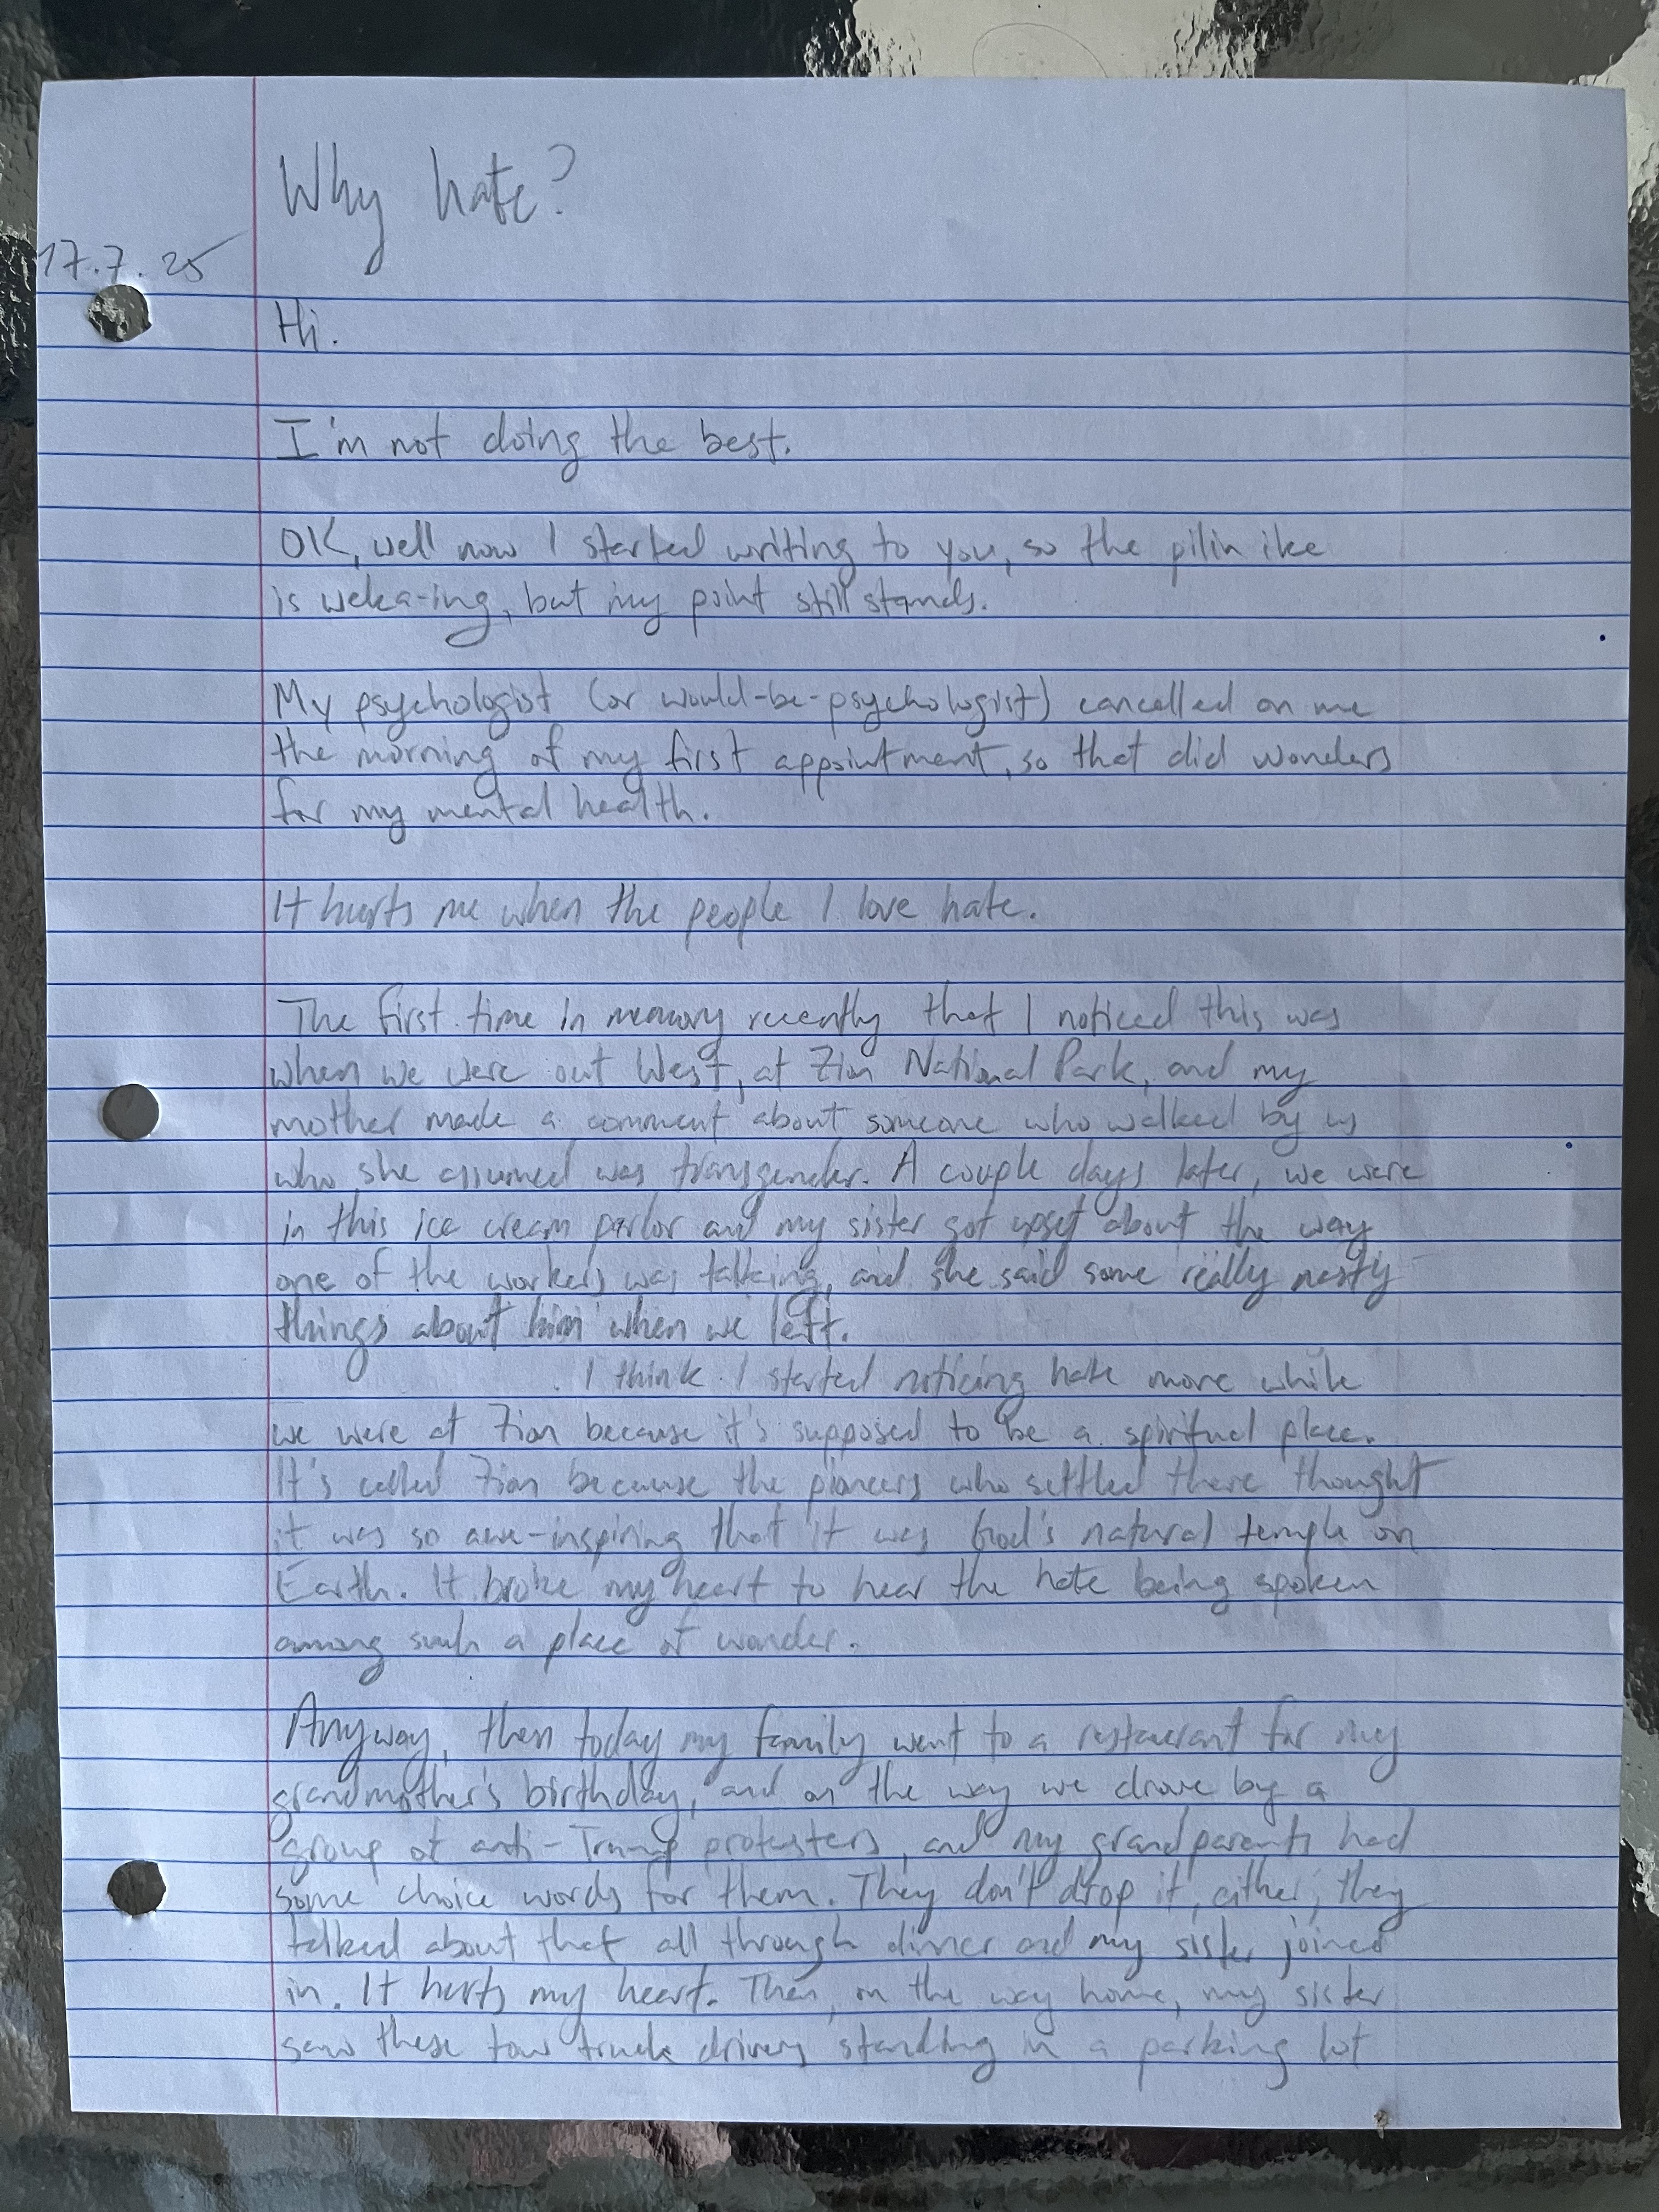 Why hate?
17.7.25
Hi.
I'm not doing the best.
OK, well now I started writing to you, so the pilin ike
is weka-ing, but my point still stands.
My psychologist (or would-be-psychologist) cancelled on me
the morning of my first appointment, so that did wonders
for my mental health.
It hurts me when the people I love hate.
The first time in memory recently that I noticed this was
when we were out West, at Zion National Park, and my
mother made a comment about someone who walked by us
who she assumed was transgender. A couple days later, we were
in this ice cream parlor and my sister got upset about the way
one of the workers was talking, and she said some really nasty
things about him when we left.
I think I started noticing hate more while
we were at Zion because it's supposed to be a spiritual place.
It's called Zion because the pioneers who settled there thought
it was so awe-inspiring that it was God's natural temple on
Earth. It broke my heart to hear the hate being spoken
among such a place of wonder.
Anyway, then today my family went to a restaurant for my
grandmother's birthday, and on the way we drove by a
group of anti-Trump protesters, and my grandparents had
some choice words for them. They don't drop it, either; they
talked about that all through dinner and my sister joined
in. It hurts my heart. Then, on the way home, my sister
saw these tow truck drivers standing in a parking lot